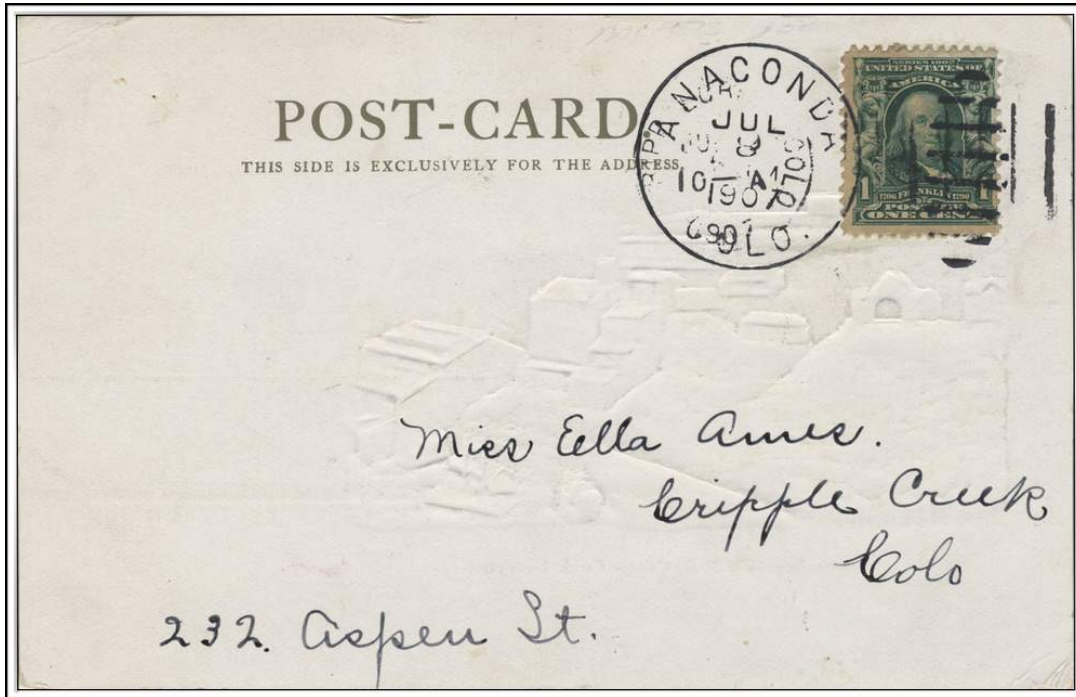 POST-CARD
THIS SIDE IS EXCLUSIVELY FOR THE ADDRESS
ANACONDA
JUL
1907
COLO.
SERIES 1902
UNITED STATES OF
AMERICA
1 FRANKLIN 1
POSTAGE
ONE CENT
Miss Ella Ames.
Cripple Creek
Colo
232. Aspen St.